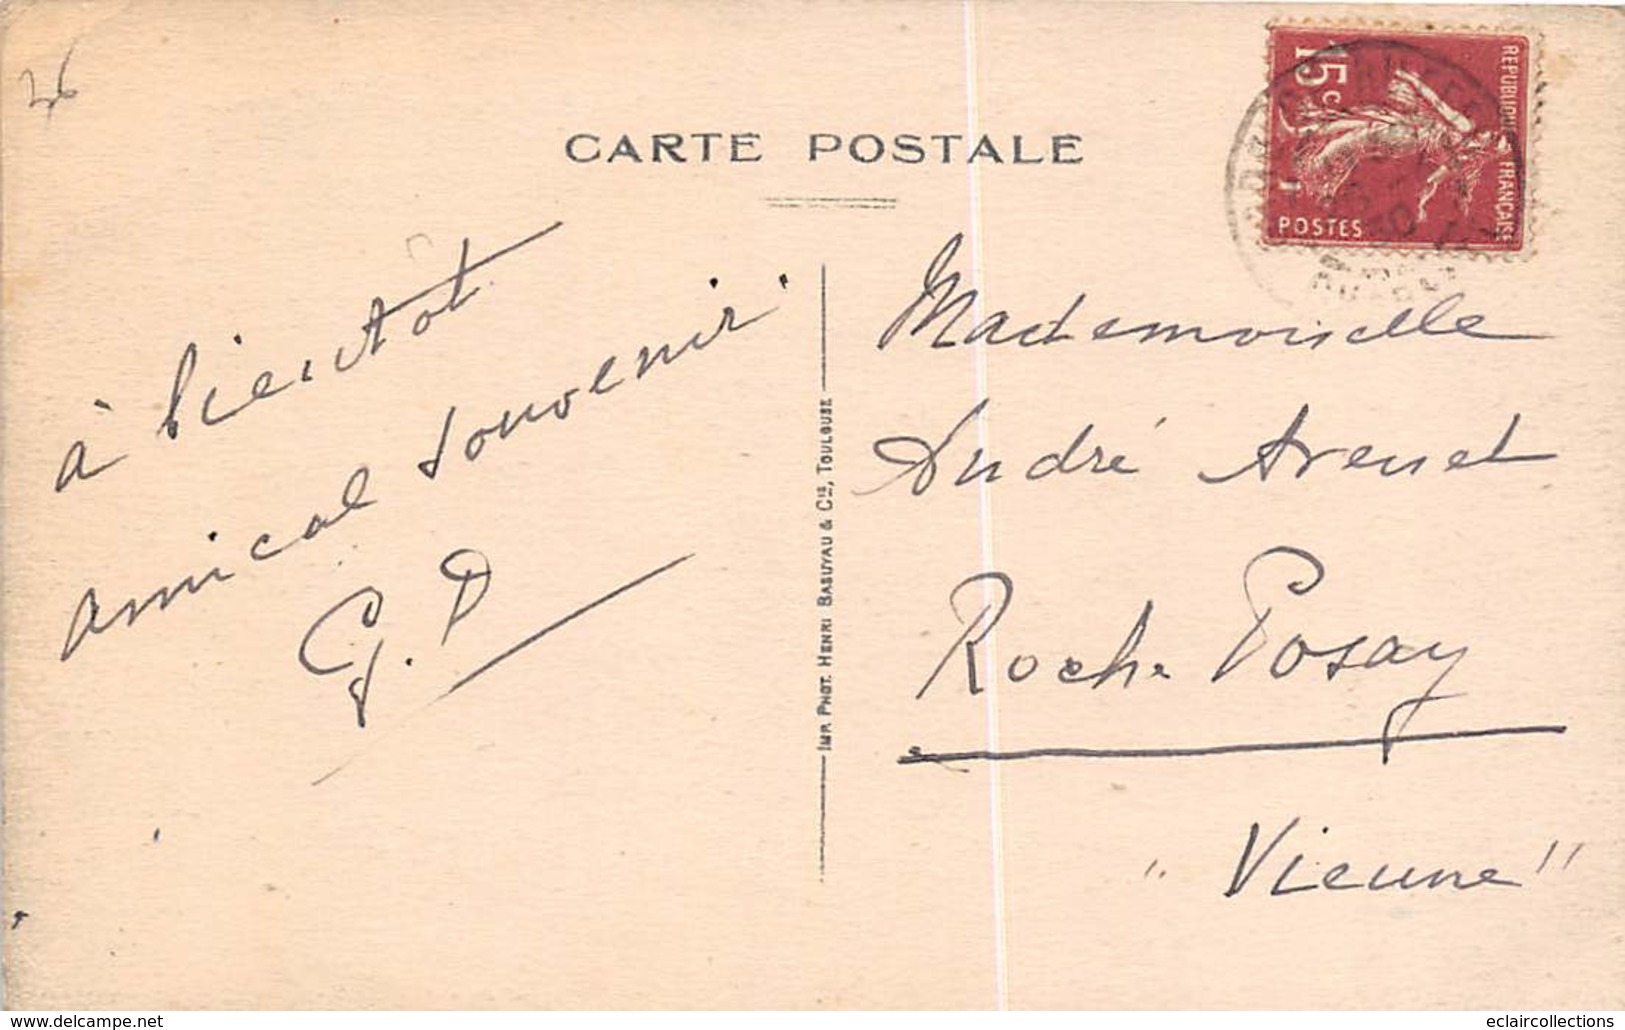 36
CARTE POSTALE
REPUBLIQUE FRANÇAISE
15c
POSTES
à bientôt
amical souvenir
G. D
IMP. PHOT. HENRI BASUYAU & CIE, TOULOUSE
Mademoiselle
André
Roche Posay
"Vienne"
www.delcampe.net
eclaircollections